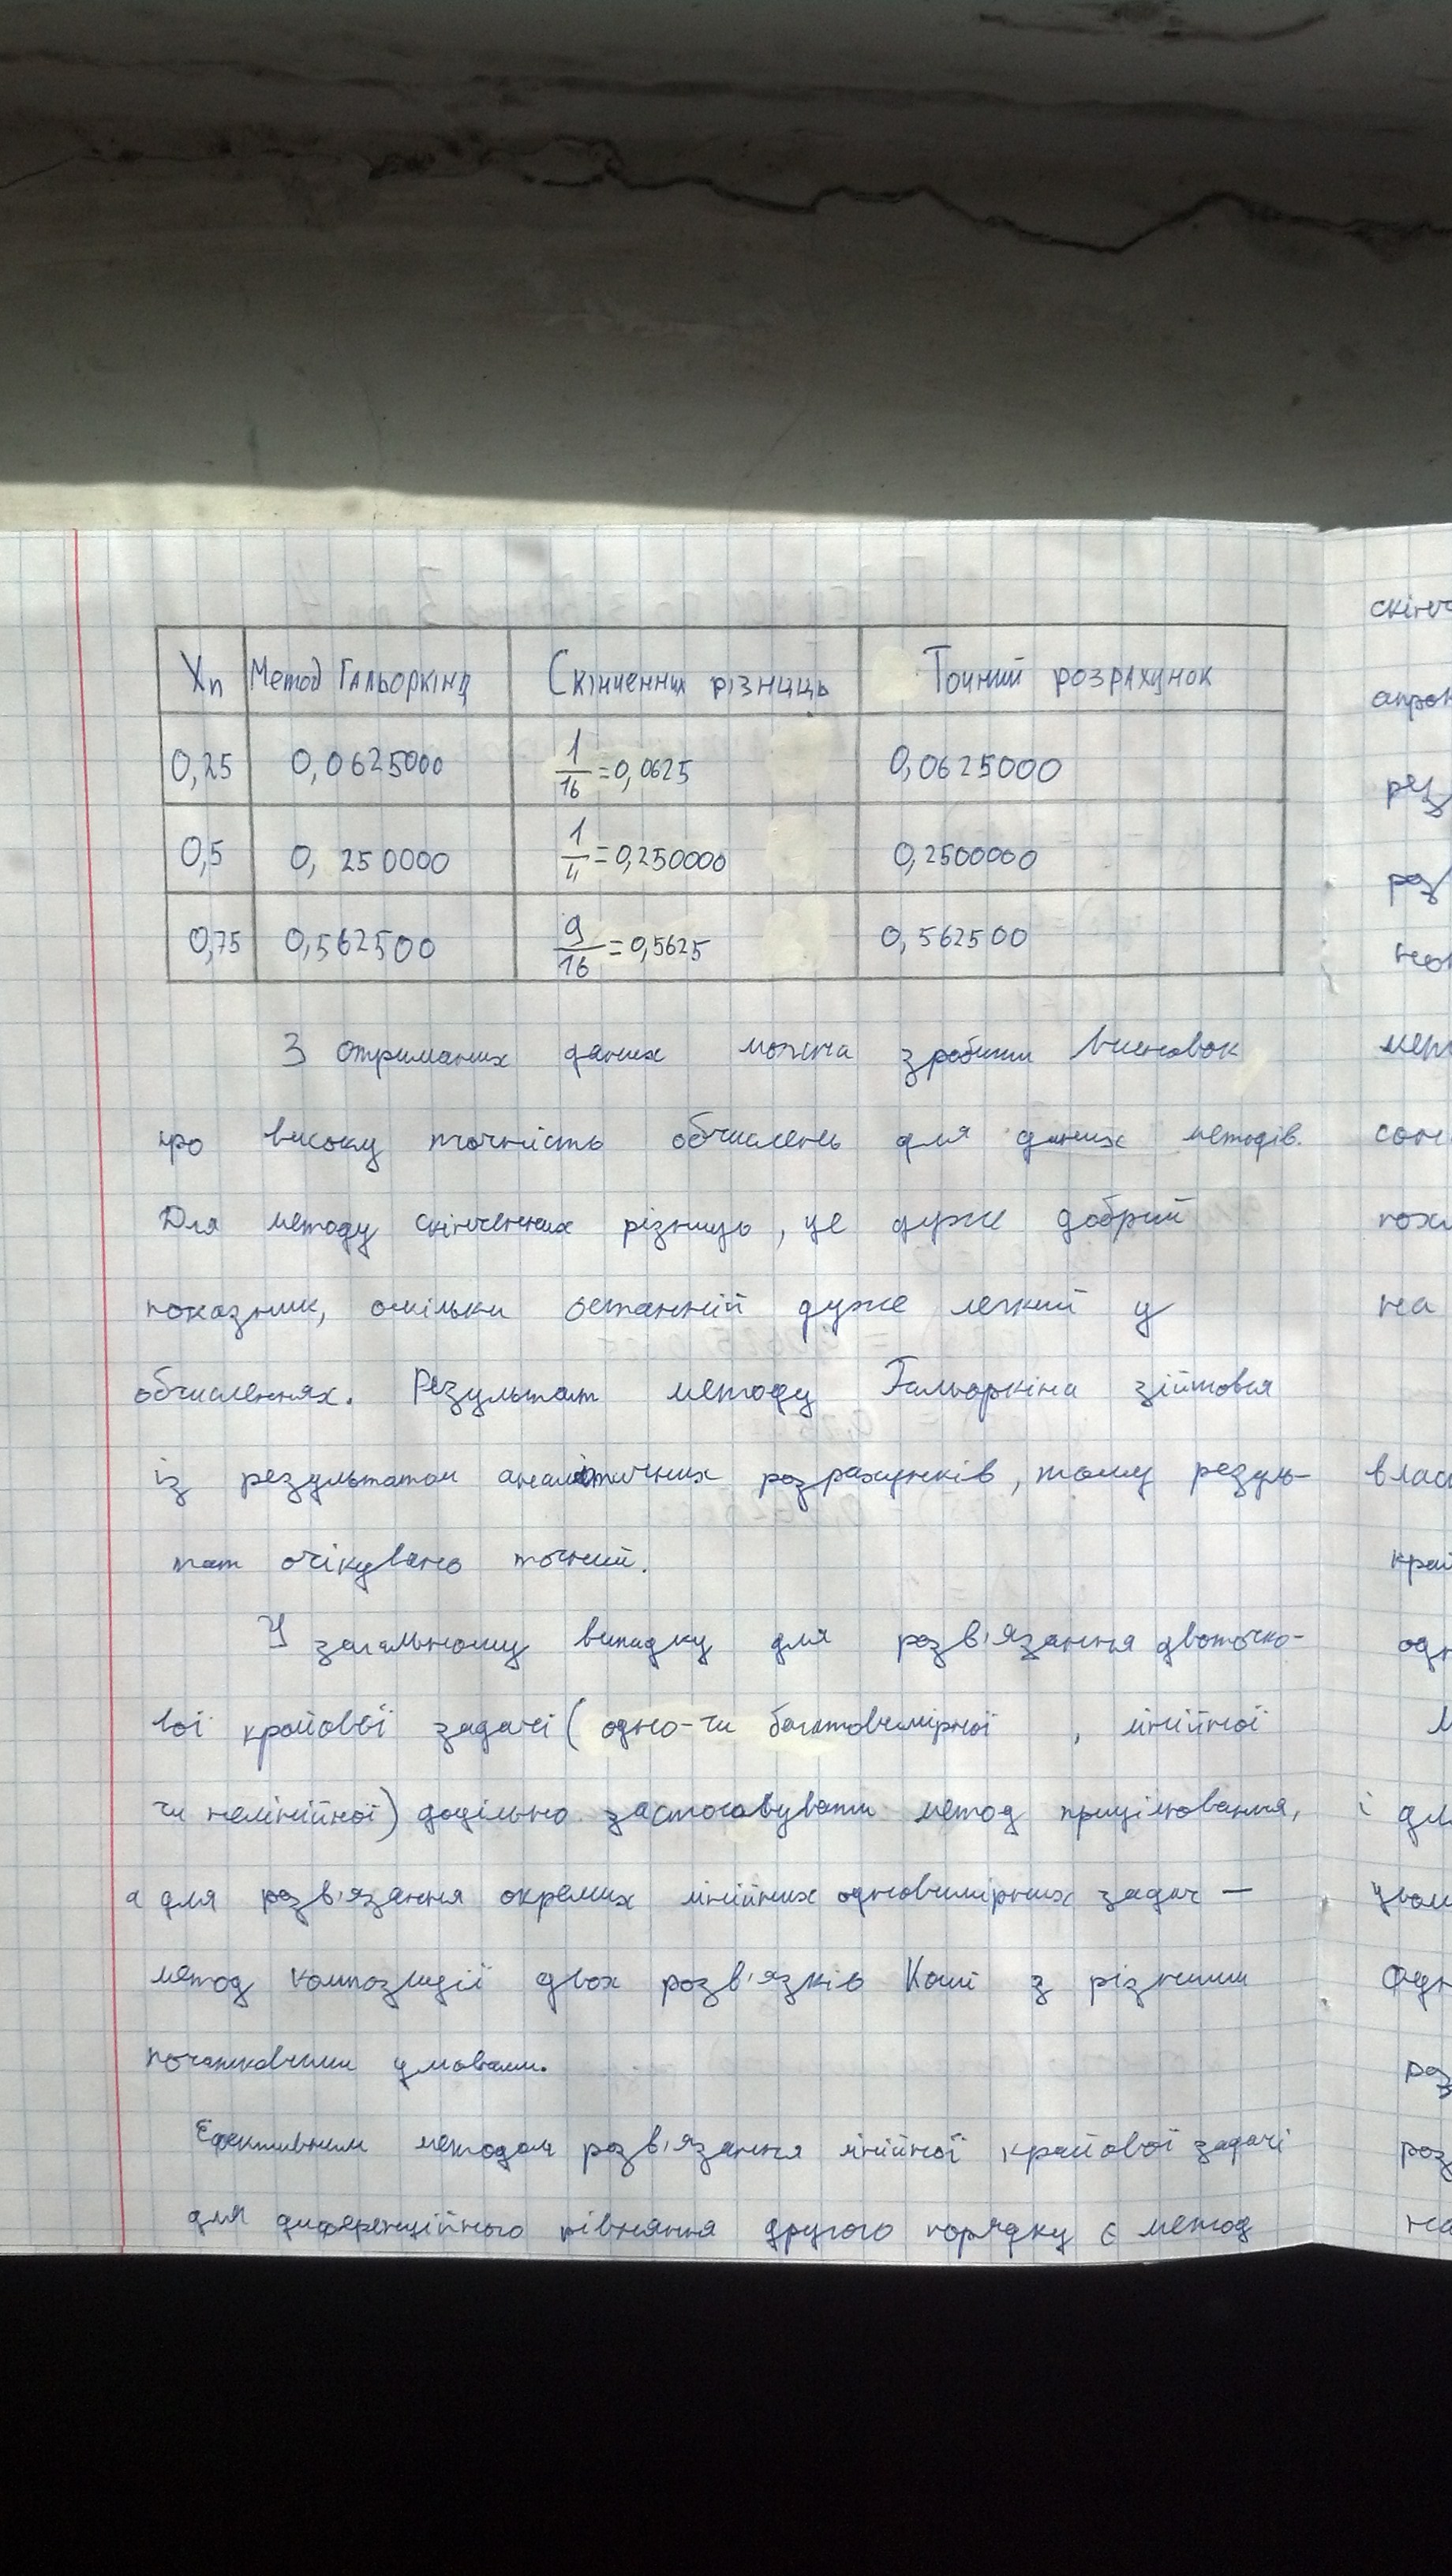 Xn Метод Гальоркіна Скінченних різниць Точний розрахунок
0,25 0,0625000 1/16 = 0,0625 0,0625000
0,5 0, 250000 1/4 = 0,250000 0,2500000
0,75 0,562500 9/16 = 0,5625 0,562500
З отриманих даних можна зробити висновок
про високу точність обчислень для даних методів.
Для методу скінченних різниць, це дуже добрий
показник, оскільки останній дуже легкий у
обчисленнях. Результат методу Гальоркіна зійшовся
із результатом аналітичних розрахунків, тому резуль-
тат очікувано точний.
У загальному випадку для розв'язання двоточко-
вої крайової задачі (одно-чи багатовимірної , лінійної
чи нелінійної) доцільно застосовувати метод прицілювання,
а для розв'язання окремих лінійних одновимірних задач —
метод композиції двох розв'язків Коші з різними
початковими умовами.
Ефективним методом розв'язання лінійної крайової задачі
для диференційного рівняння другого порядку є метод